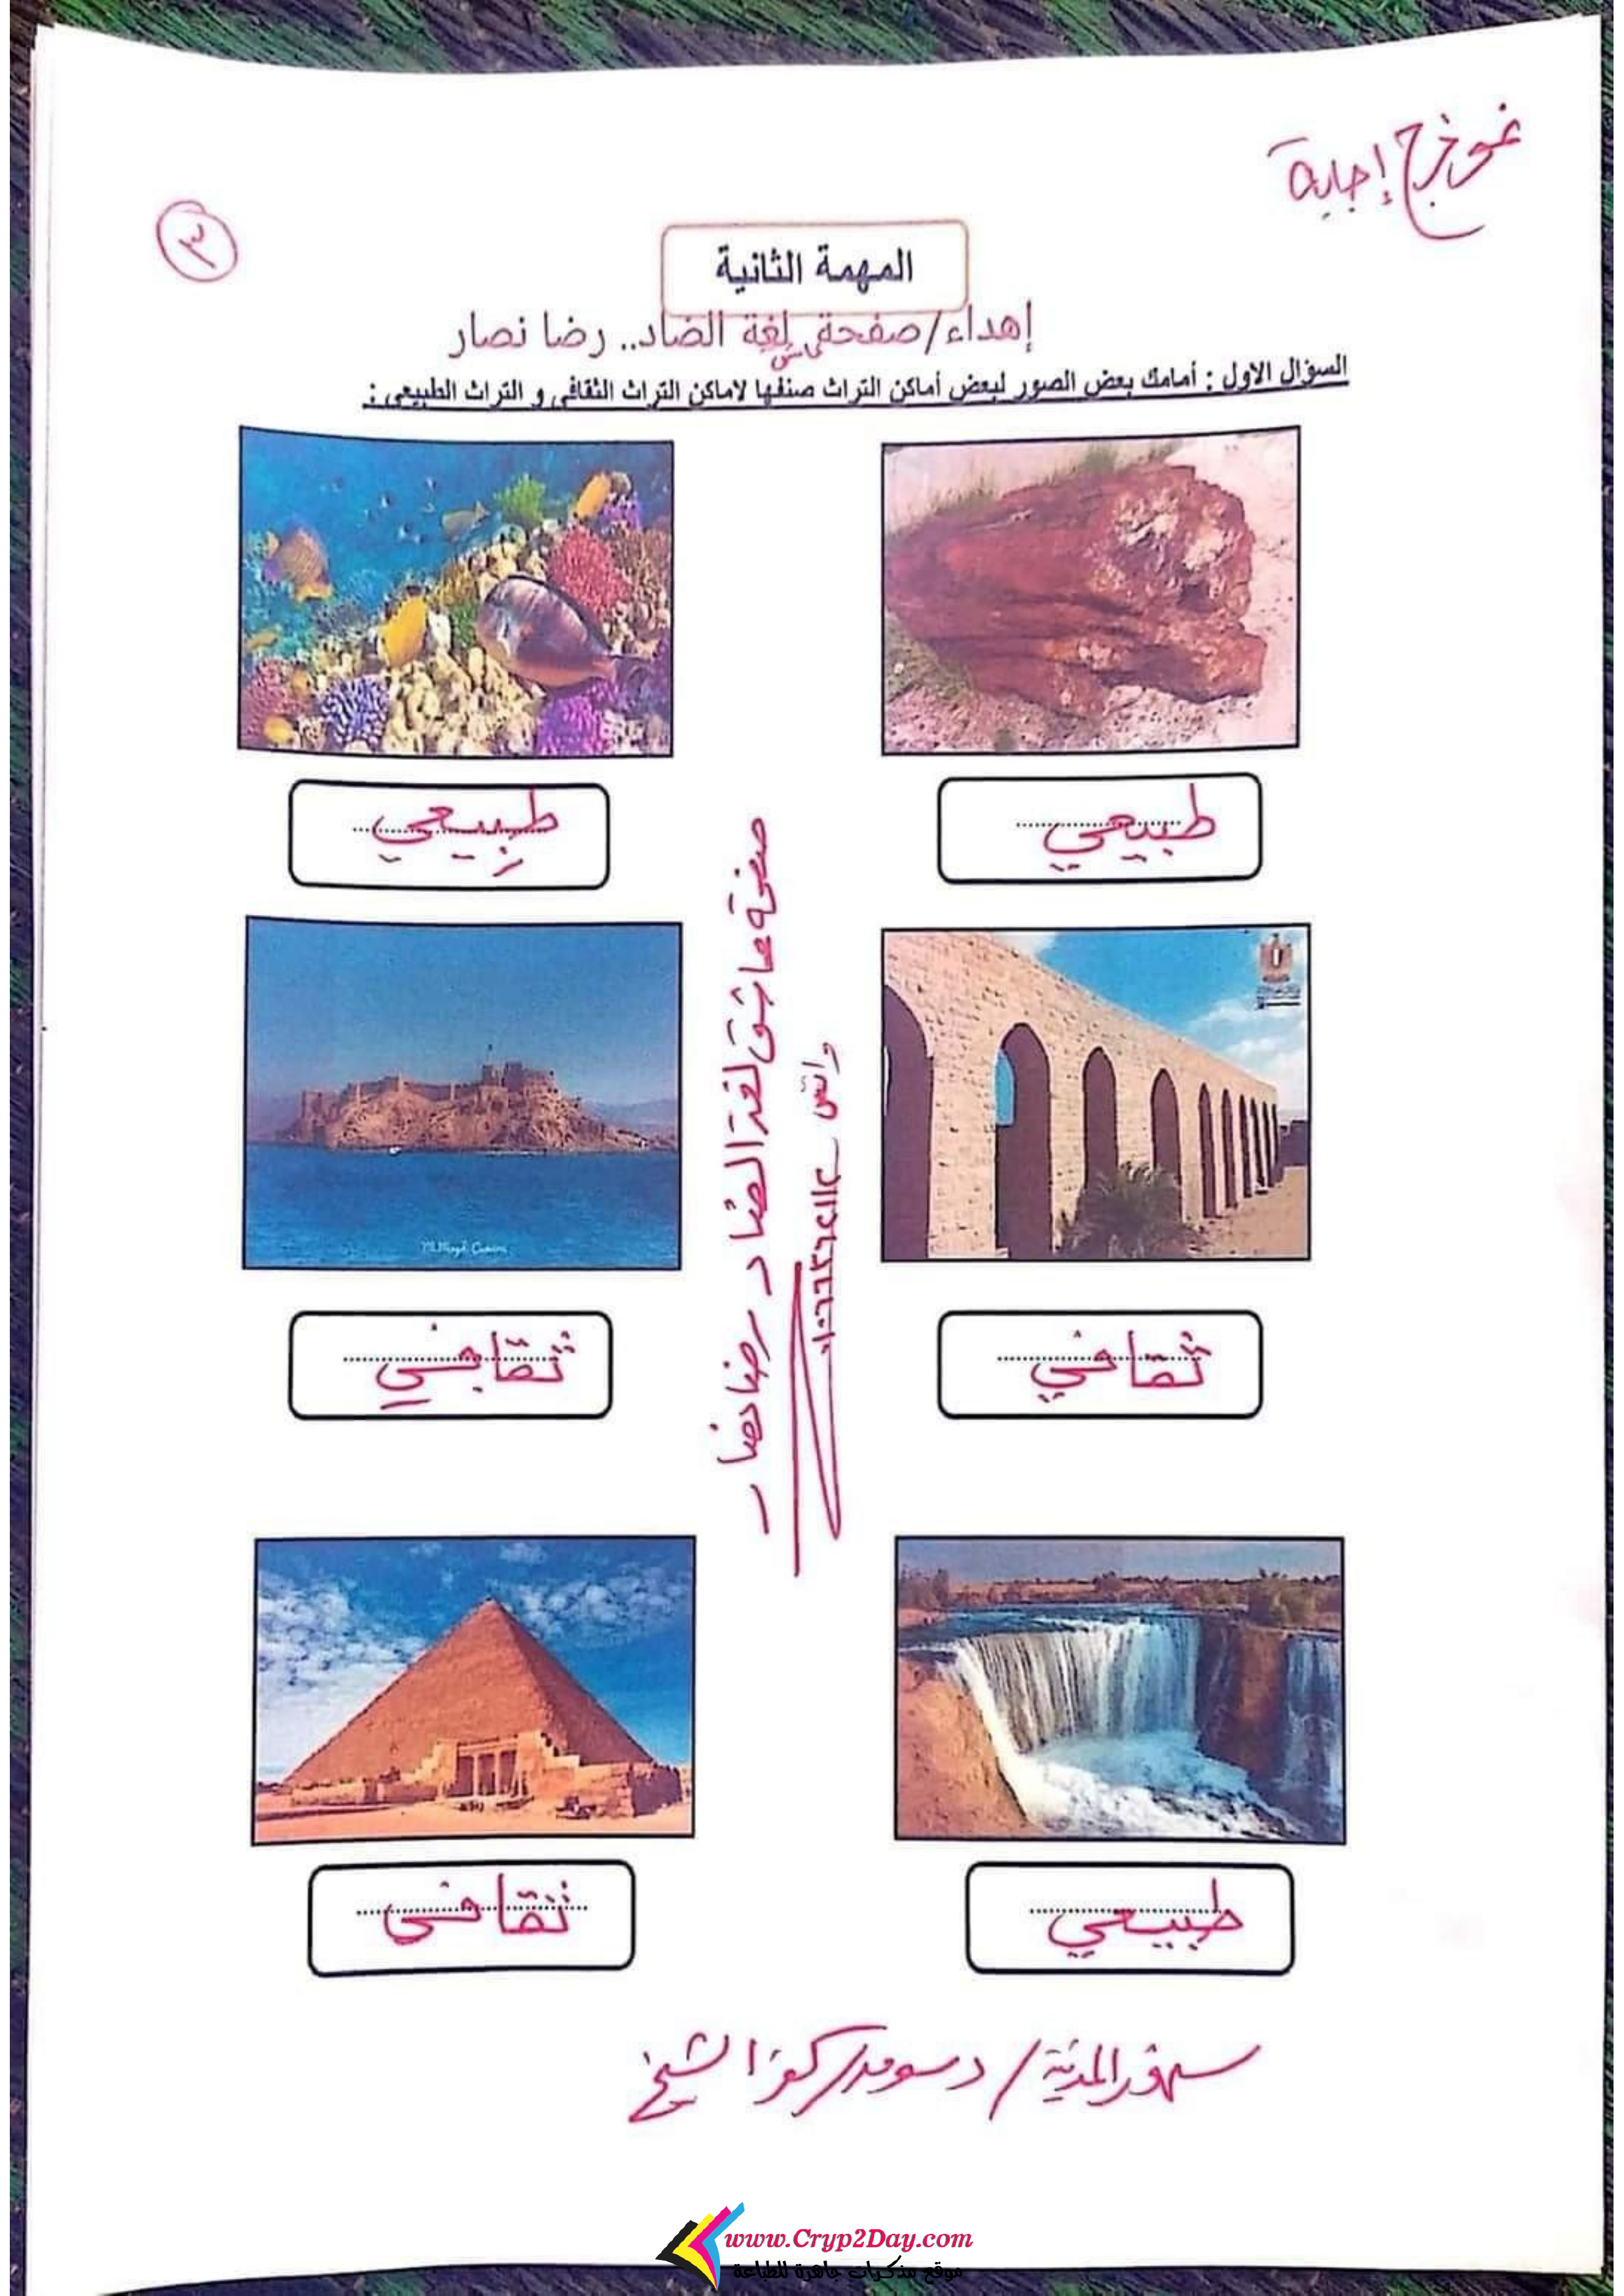 نموذج إجابة
٣
المهمة الثانية
إهداء/صفحة لغة الضاد.. رضا نصار
السؤال الاول : أمامك بعض الصور لبعض أماكن التراث صنفها لاماكن التراث الثقافى و التراث الطبيعى :
طبيعي
طبيعي
صفحة عاشق لغة الضاد رضا نصار
واتس
ثقافي
ثقافي
طبيعي
ثقافى
سنهور المدينة / دسوق / كفر الشيخ
www.Cryp2Day.com
موقع مذكرات جاهزة للطباعة